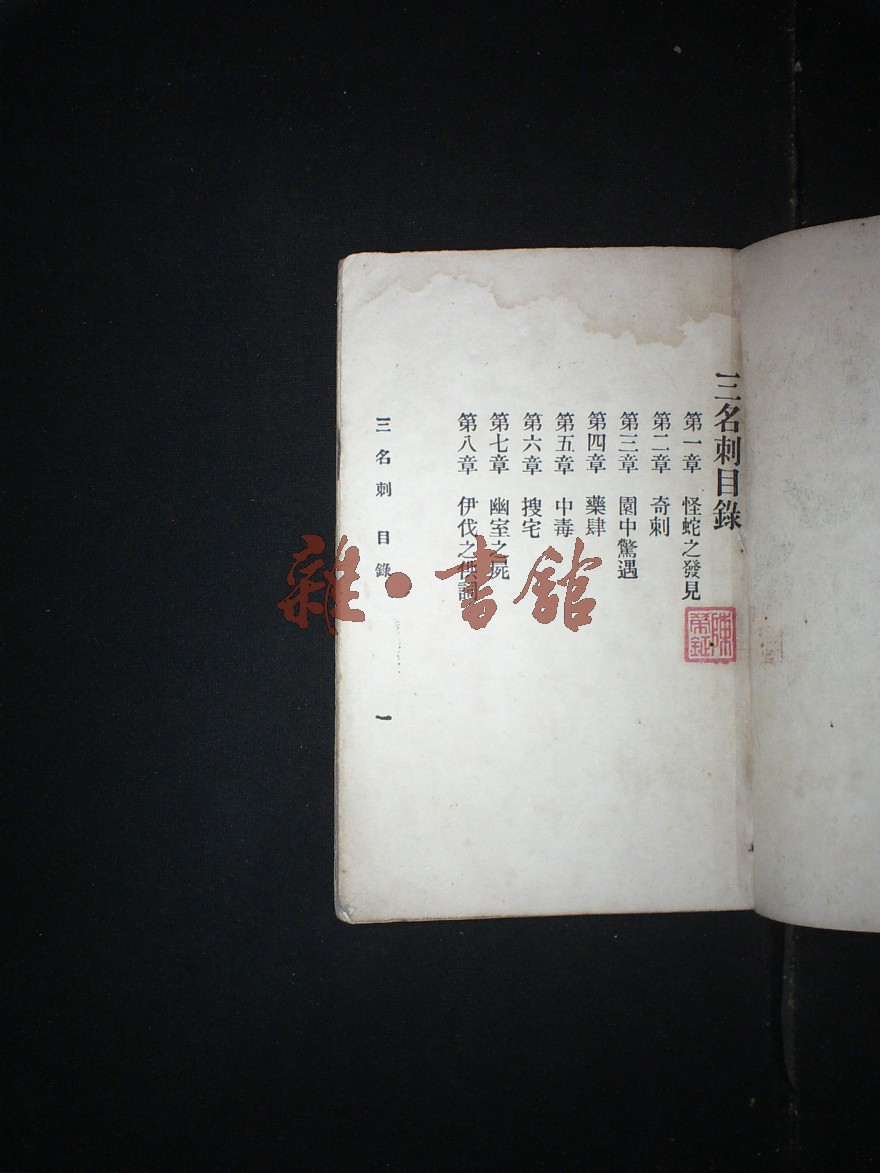 三名刺目錄
第一章 怪蛇之發見
第二章 奇刺
第三章 園中驚遇
第四章 藥肆
第五章 中毒
第六章 搜宅
第七章 幽室之屍
第八章 伊伐之供詞
三名刺 目錄
一
雜·書館